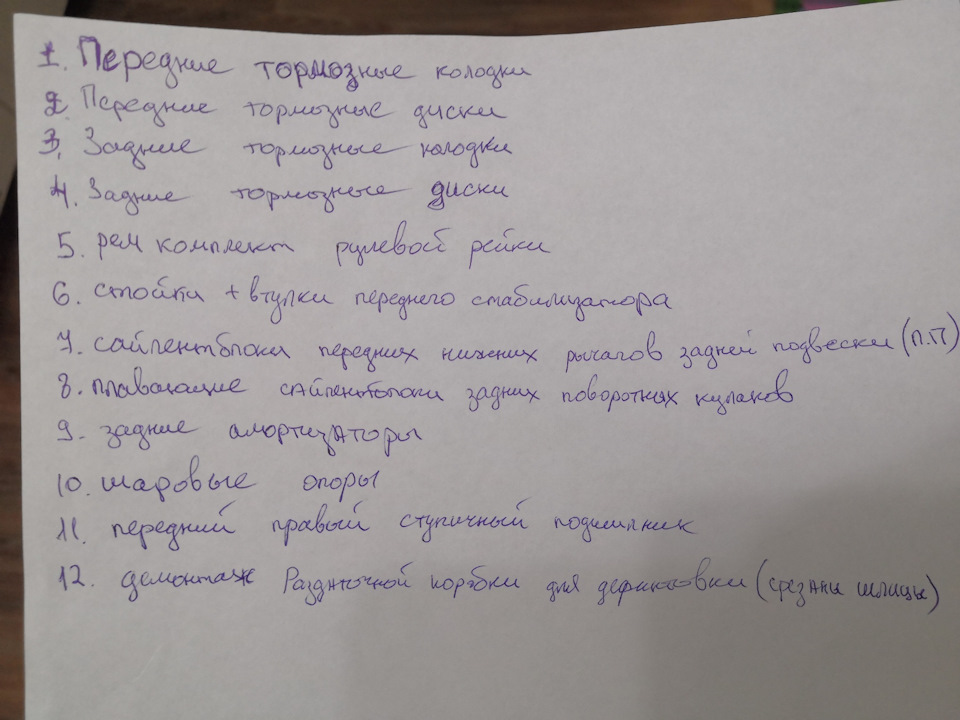 1. Передние тормозные колодки
2. Передние тормозные диски
3. Задние тормозные колодки
4. Задние тормозные диски
5. рем комплект рулевой рейки
6. стойки + втулки переднего стабилизатора
7. сайлентблоки передних нижних рычагов задней подвески (П.П)
8. плавающие сайлентблоки задних поворотных кулаков
9. задние амортизаторы
10. шаровые опоры
11. передний правый ступичный подшипник
12. демонтаж Раздаточной коробки для дефектовки (срезаны шлицы)